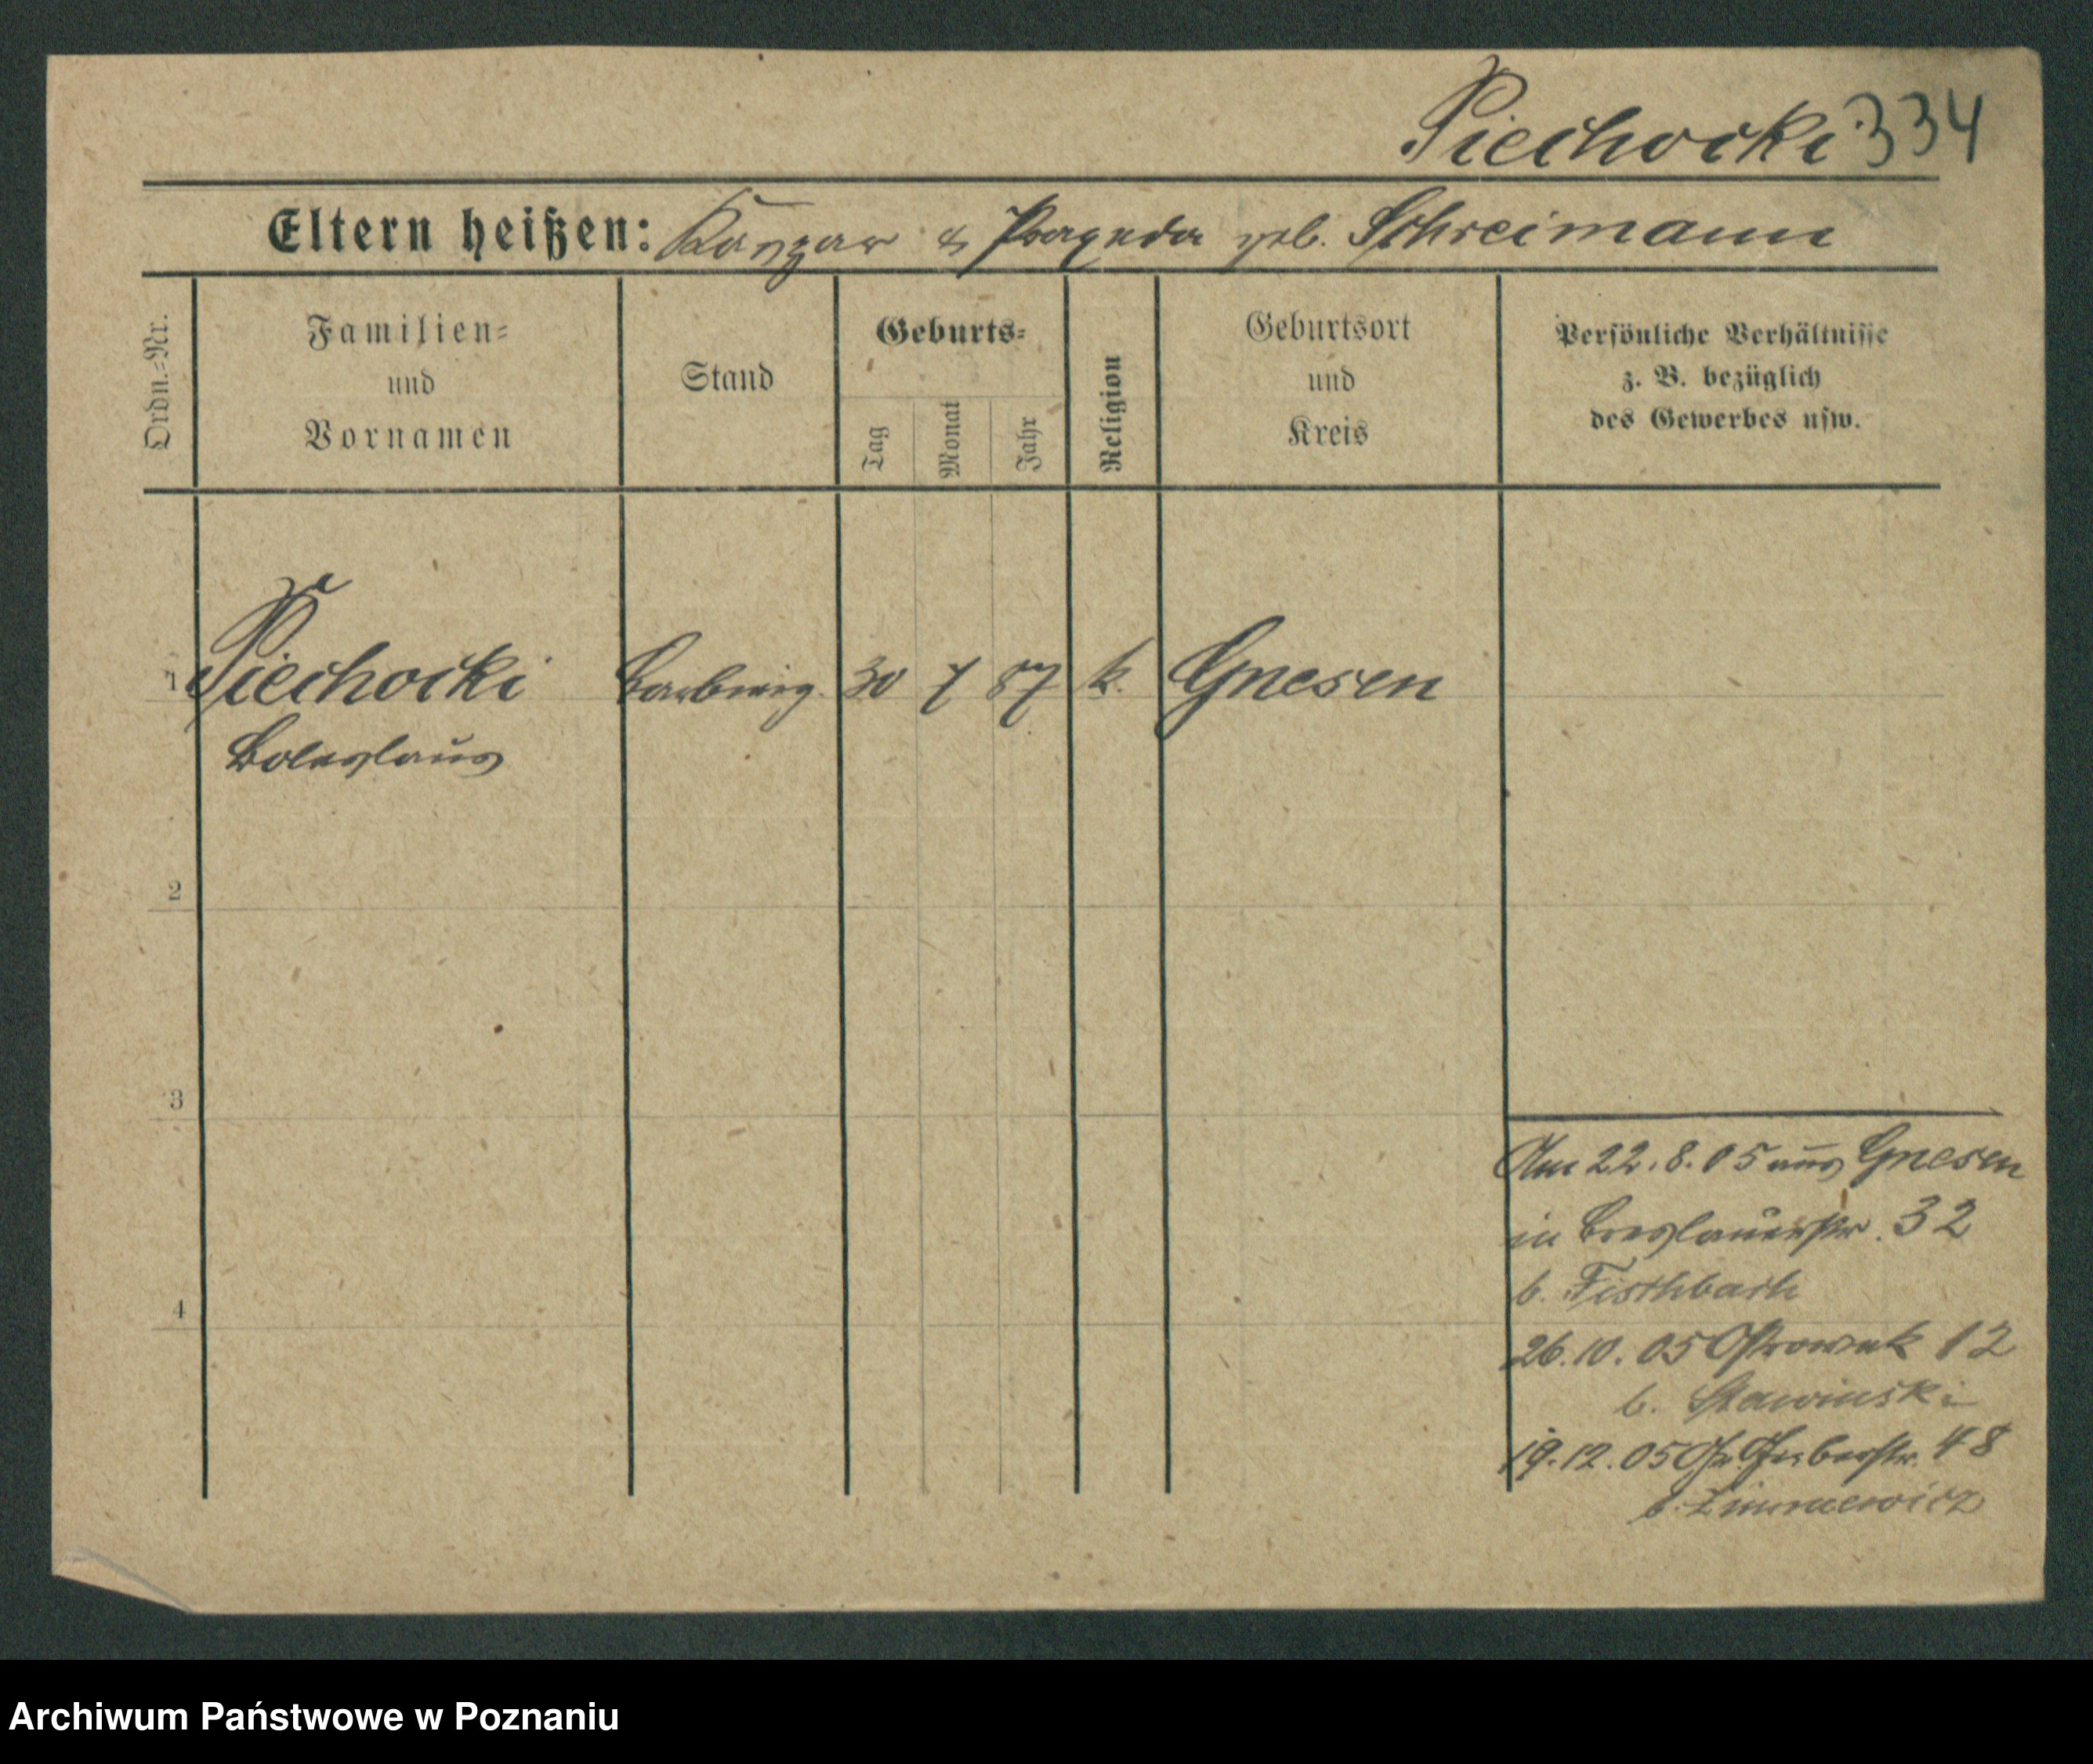 Piechocki 334
Eltern heißen: Kaspar & Praxeda geb. Schreimann
Ordn.-Nr.
Familien-
und
Vornamen
Stand
Geburts-
Tag
Monat
Jahr
Religion
Geburtsort
und
Kreis
Persönliche Verhältnisse
z. B. bezüglich
des Gewerbes usw.
1 Piechocki Barbierg. 30 7 87 k. Gnesen
Boleslaus
2
3
4
Am 22.8.05 aus Gnesen
in Breslauerstr. 32
b. Fischbach
26.10.05 Ostrowek 12
b. Stawinski
19.12.05 Gr. Gerberstr. 48
b.
Archiwum Państwowe w Poznaniu